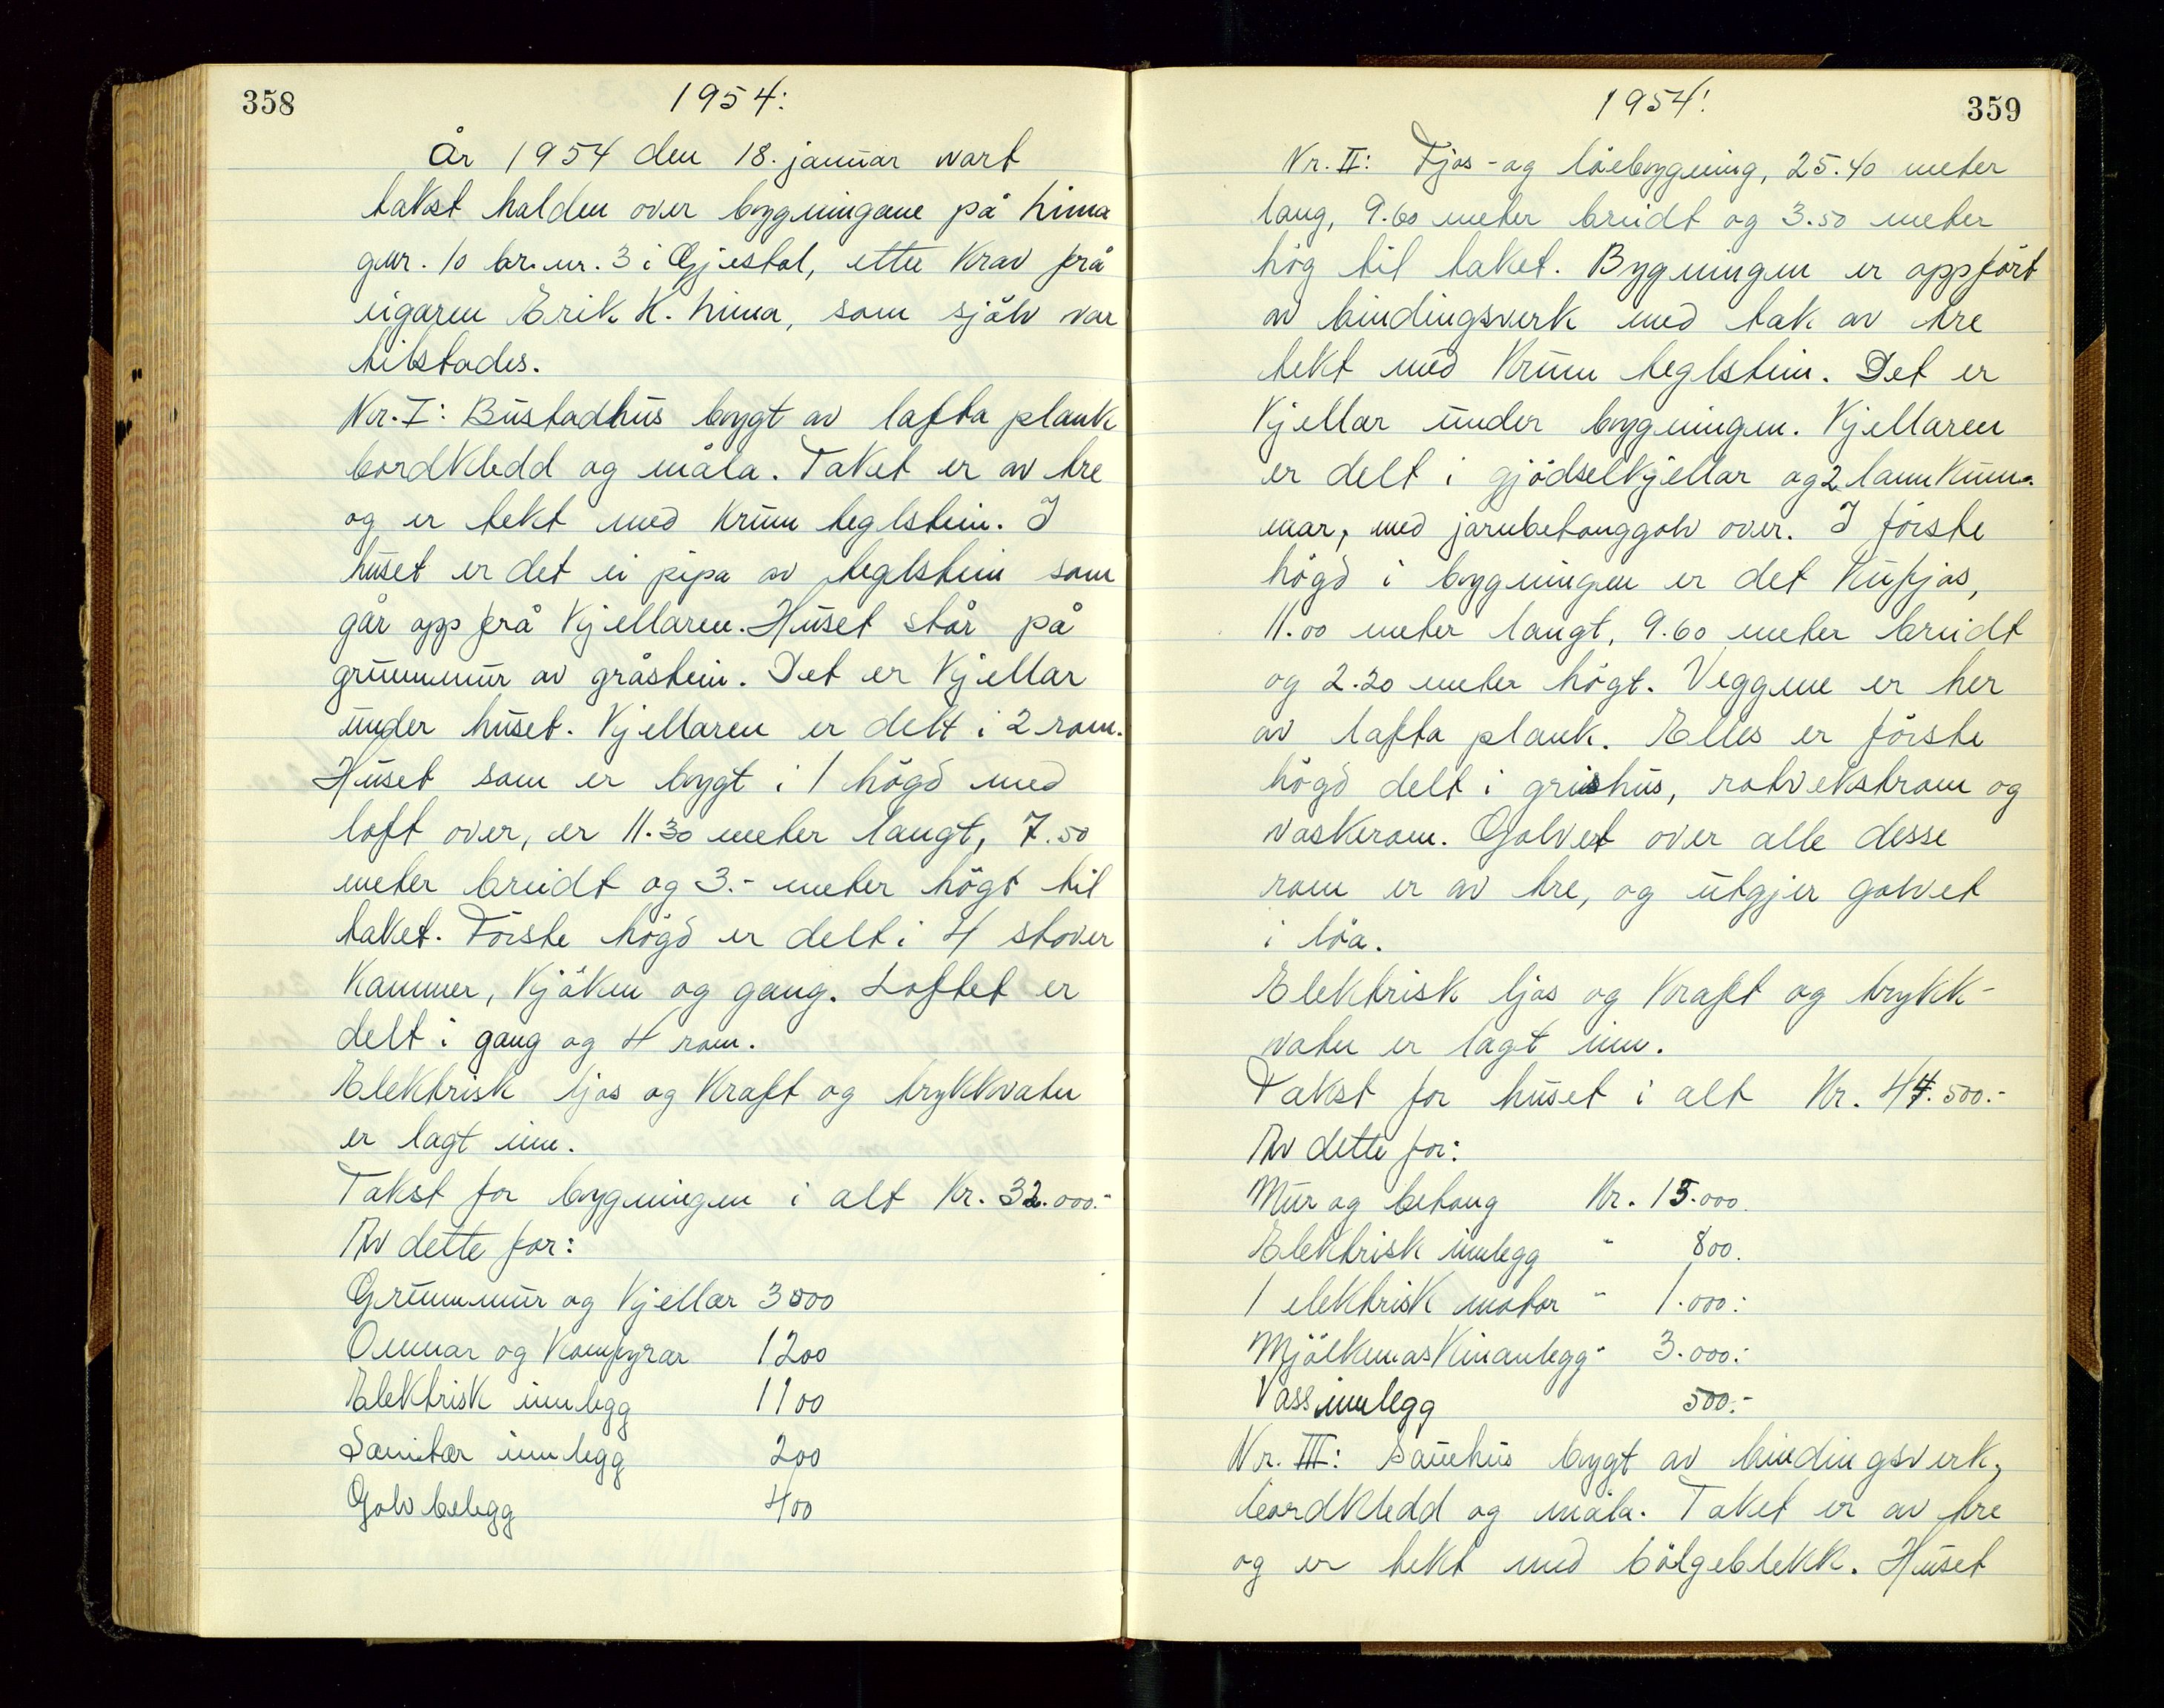 358
1954:
År 1954 den 18. januar vart
takst halden over bygningane på Lima
gnr. 10 br.nr. 3 i Gjestal, etter krav frå
eigaren Erik K. Lima, som sjölv var
tilstades.
Nr. I: Bustadhus bygt av lafta plank
bordkledd og måla. Taket er av tre
og er tekt med krum teglstein. I
huset er det ei pipa av teglstein som
går opp frå kjellaren. Huset står på
grunnmur av gråstein. Det er kjellar
under huset. Kjellaren er delt i 2 rom.
Huset som er bygt i 1 högd med
loft over, er 11.30 meter langt, 7.50
meter breidt og 3.- meter högt til
taket. Förste högd er delt i 4 stover
kammer, kjöken og gang. Loftet er
delt i gang og 4 rom.
Elektrisk ljos og kraft og trykkvatn
er lagt inn.
Takst for bygningen i alt Kr. 32.000.-
Av dette for:
Grunnmur og kjellar 3000
Omnar og komfyrar 1200
Elektrisk innlegg 1100
Sanitær innlegg 200
Golvbelegg 400
1954:
359
Nr. II: Fjos- og löebygning, 25.40 meter
lang, 9.60 meter breidt og 3.50 meter
hög til taket. Bygningen er oppfört
av bindingsverk med tak av tre
tekt med krum teglstein. Det er
kjellar under bygningen. Kjellaren
er delt i gjödselkjellar og 2 lannkum-
mar, med jarnbetonggolv over. I förste
högd i bygningen er det kufjos,
11.00 meter langt, 9.60 meter breidt
og 2.20 meter högt. Veggene er her
av lafta plank. Elles er förste
högd delt i grishus, rotvekstrom og
vaskerom. Golvet over alle desse
rom er av tre, og utgjer golvet
i löa.
Elektrisk ljos og kraft og trykk-
vatn er lagt inn.
Takst for huset i alt Kr. 47.500.-
Av dette for:
Mur og betong Kr. 15.000.
Elektrisk innlegg " 800.
1 elektrisk motor " 1.000:
Mjölkemaskinanlegg " 3.000:
Vassinnlegg 500.-
Nr. III: Sauehus bygt av bindingsverk,
bordkledd og måla. Taket er av tre
og er tekt med bölgeblekk. Huset